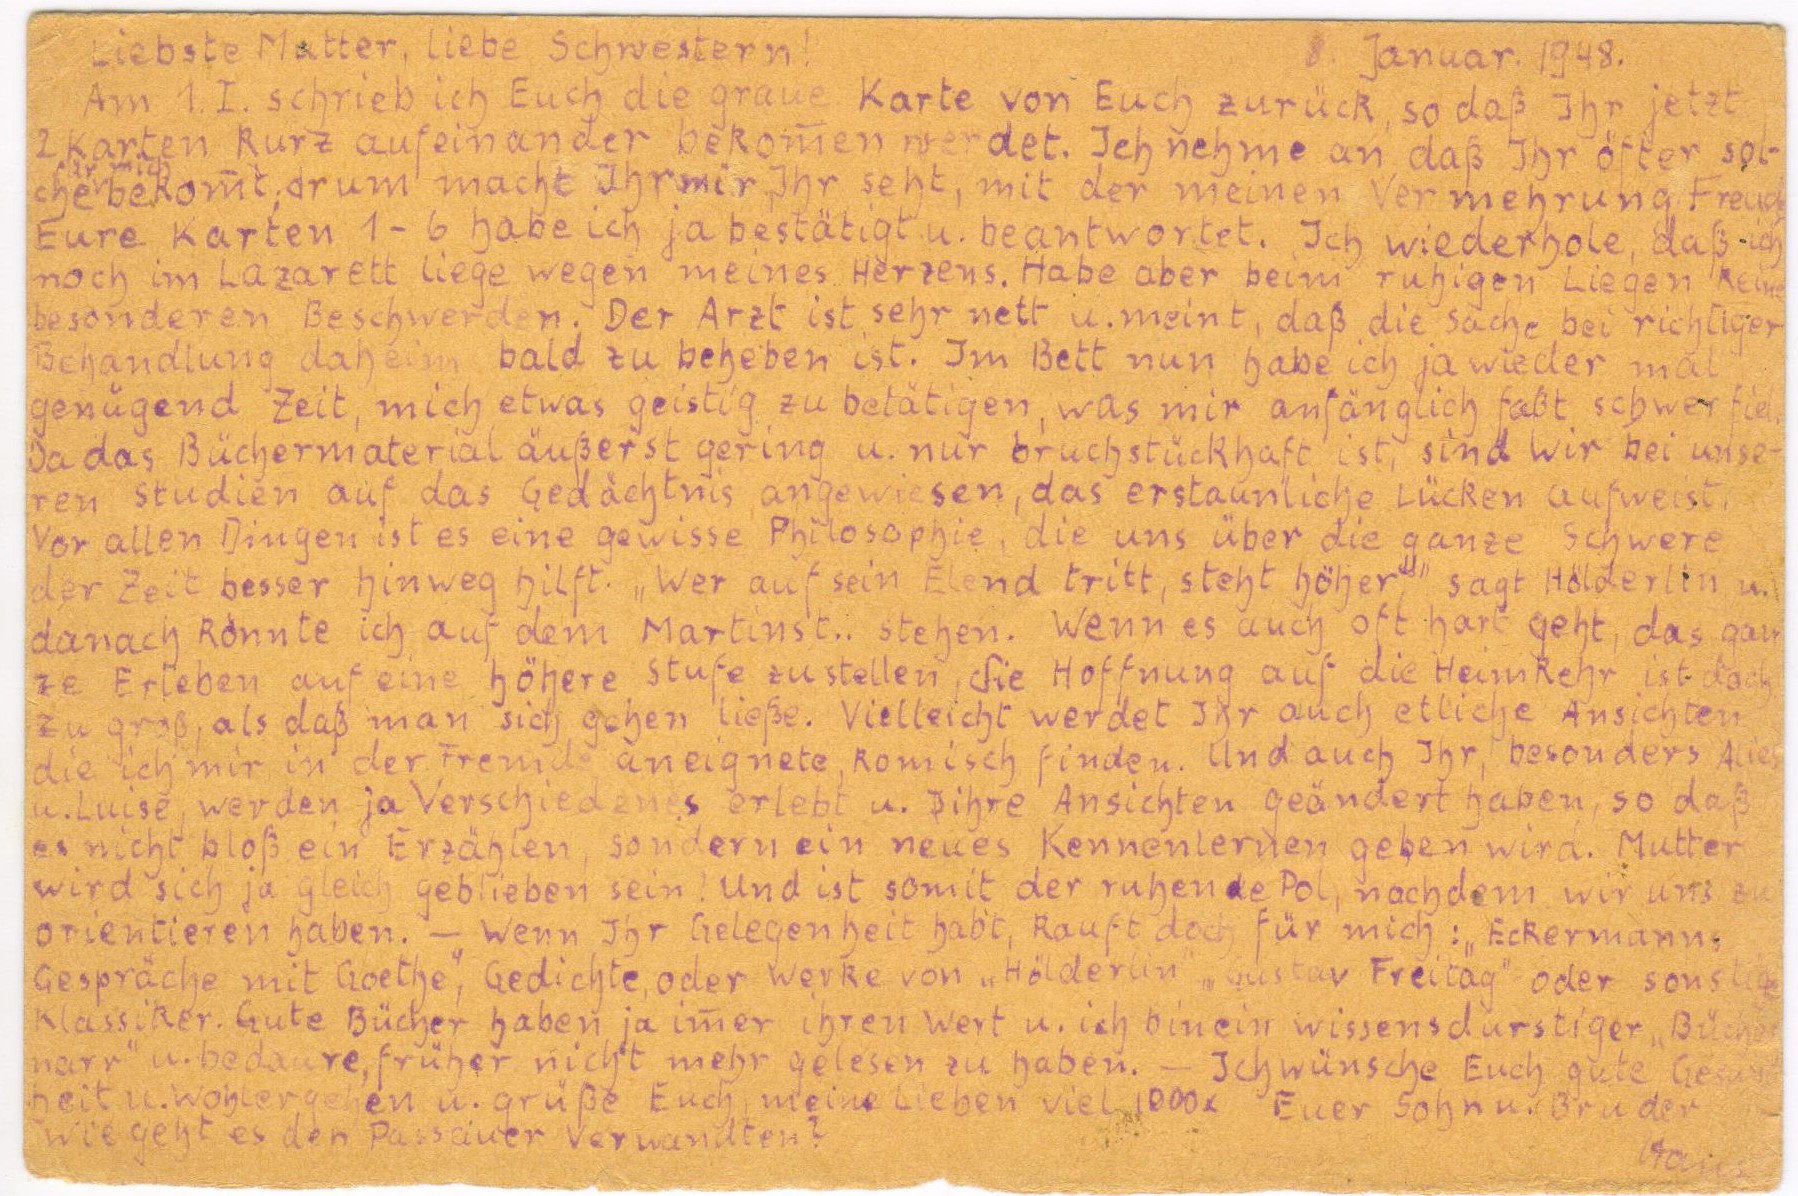 Liebste Mutter, liebe Schwestern! 8. Januar. 1948.
Am 1.I. schrieb ich Euch die graue Karte von Euch zurück, so daß Ihr jetzt
2 Karten kurz aufeinander bekom̅en werdet. Ich nehme an daß Ihr öfter sol-
für mich
che bekom̅t, drum macht Ihr mir, Ihr seht, mit der meinen Vermehrung Freude
Eure Karten 1-6 habe ich ja bestätigt u. beantwortet. Ich wiederhole, daß ich
noch im Lazarett liege wegen meines Herzens. Habe aber beim ruhigen Liegen keine
besonderen Beschwerden. Der Arzt ist sehr nett u. meint, daß die Sache bei richtiger
Behandlung daheim bald zu beheben ist. Im Bett nun habe ich ja wieder mal
genügend Zeit, mich etwas geistig zu betätigen, was mir anfänglich faßt schwer fiel.
Da das Büchermaterial äußerst gering u. nur bruchstückhaft ist, sind wir bei unse-
ren Studien auf das Gedächtnis angewiesen, das erstaunliche Lücken aufweist.
Vor allen Dingen ist es eine gewisse Philosophie, die uns über die ganze Schwere
der Zeit besser hinweg hilft. „Wer auf sein Elend tritt, steht höher", sagt Hölderlin u.
danach könnte ich auf dem Martinst.. stehen. Wenn es auch oft hart geht, das gan
ze Erleben auf eine höhere Stufe zu stellen, die Hoffnung auf die Heimkehr ist doch
zu groß, als daß man sich gehen ließe. Vielleicht werdet Ihr auch etliche Ansichten
die ich mir in der Fremde aneignete, komisch finden. Und auch Ihr, besonders
u. Luise, werden ja Verschiedenes erlebt u. ihre Ansichten geändert haben, so daß
es nicht bloß ein Erzählen, sondern ein neues Kennenlernen geben wird. Mutter
wird sich ja gleich geblieben sein! Und ist somit der ruhende Pol, nachdem wir uns zu
orientieren haben. – Wenn Ihr Gelegenheit habt, kauft doch für mich: „Eckermanns
Gespräche mit Goethe", Gedichte, oder Werke von „Hölderlin" „Gustav Freitag" oder sonstige
Klassiker. Gute Bücher haben ja im̅er ihren Wert u. ich bin ein wissensdurstiger „Bücher
narr" u. bedaure, früher nicht mehr gelesen zu haben. – Ich wünsche Euch gute Gesund
heit u. Wohlergehen u. grüße Euch meine Lieben viel 1000x Euer Sohn u. Bruder
Wie geht es den Passauer Verwandten?
Hans